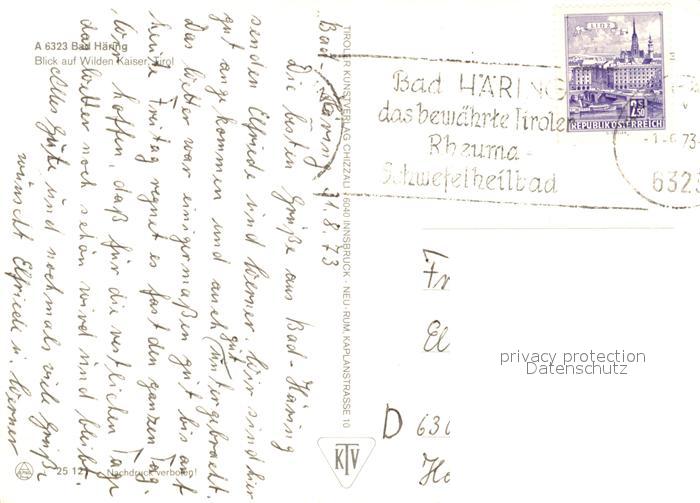 A 6323 Bad Häring
Blick auf Wilden Kaiser, Tirol
Bad-Häring 31.8.73
Die besten Grüße aus Bad-Häring
senden Elfriede und Werner. Wir sind hier
gut angekommen und auch gut untergebracht.
Das Wetter war einigermaßen gut bis auf
heute Freitag regnet es fast den ganzen Tag.
Wir hoffen, daß für die restlichen Tage
das Wetter noch schön wird und bleibt.
Alles Gute und nochmals viele Grüße
wünscht Elfriede u. Werner
25 127
Nachdruck verboten!
TIROLER KUNSTVERLAG CHIZZALI · 6040 INNSBRUCK - NEU-RUM, KAPLANSTRASSE 10
KTV
Bad HÄRING
das bewährte Tiroler
Rheuma-
Schwefelheilbad
LINZ
2.50
S
REPUBLIK ÖSTERREICH
-1.-6.73-
6323
Fr
El
D 630
Ho
privacy protection
Datenschutz